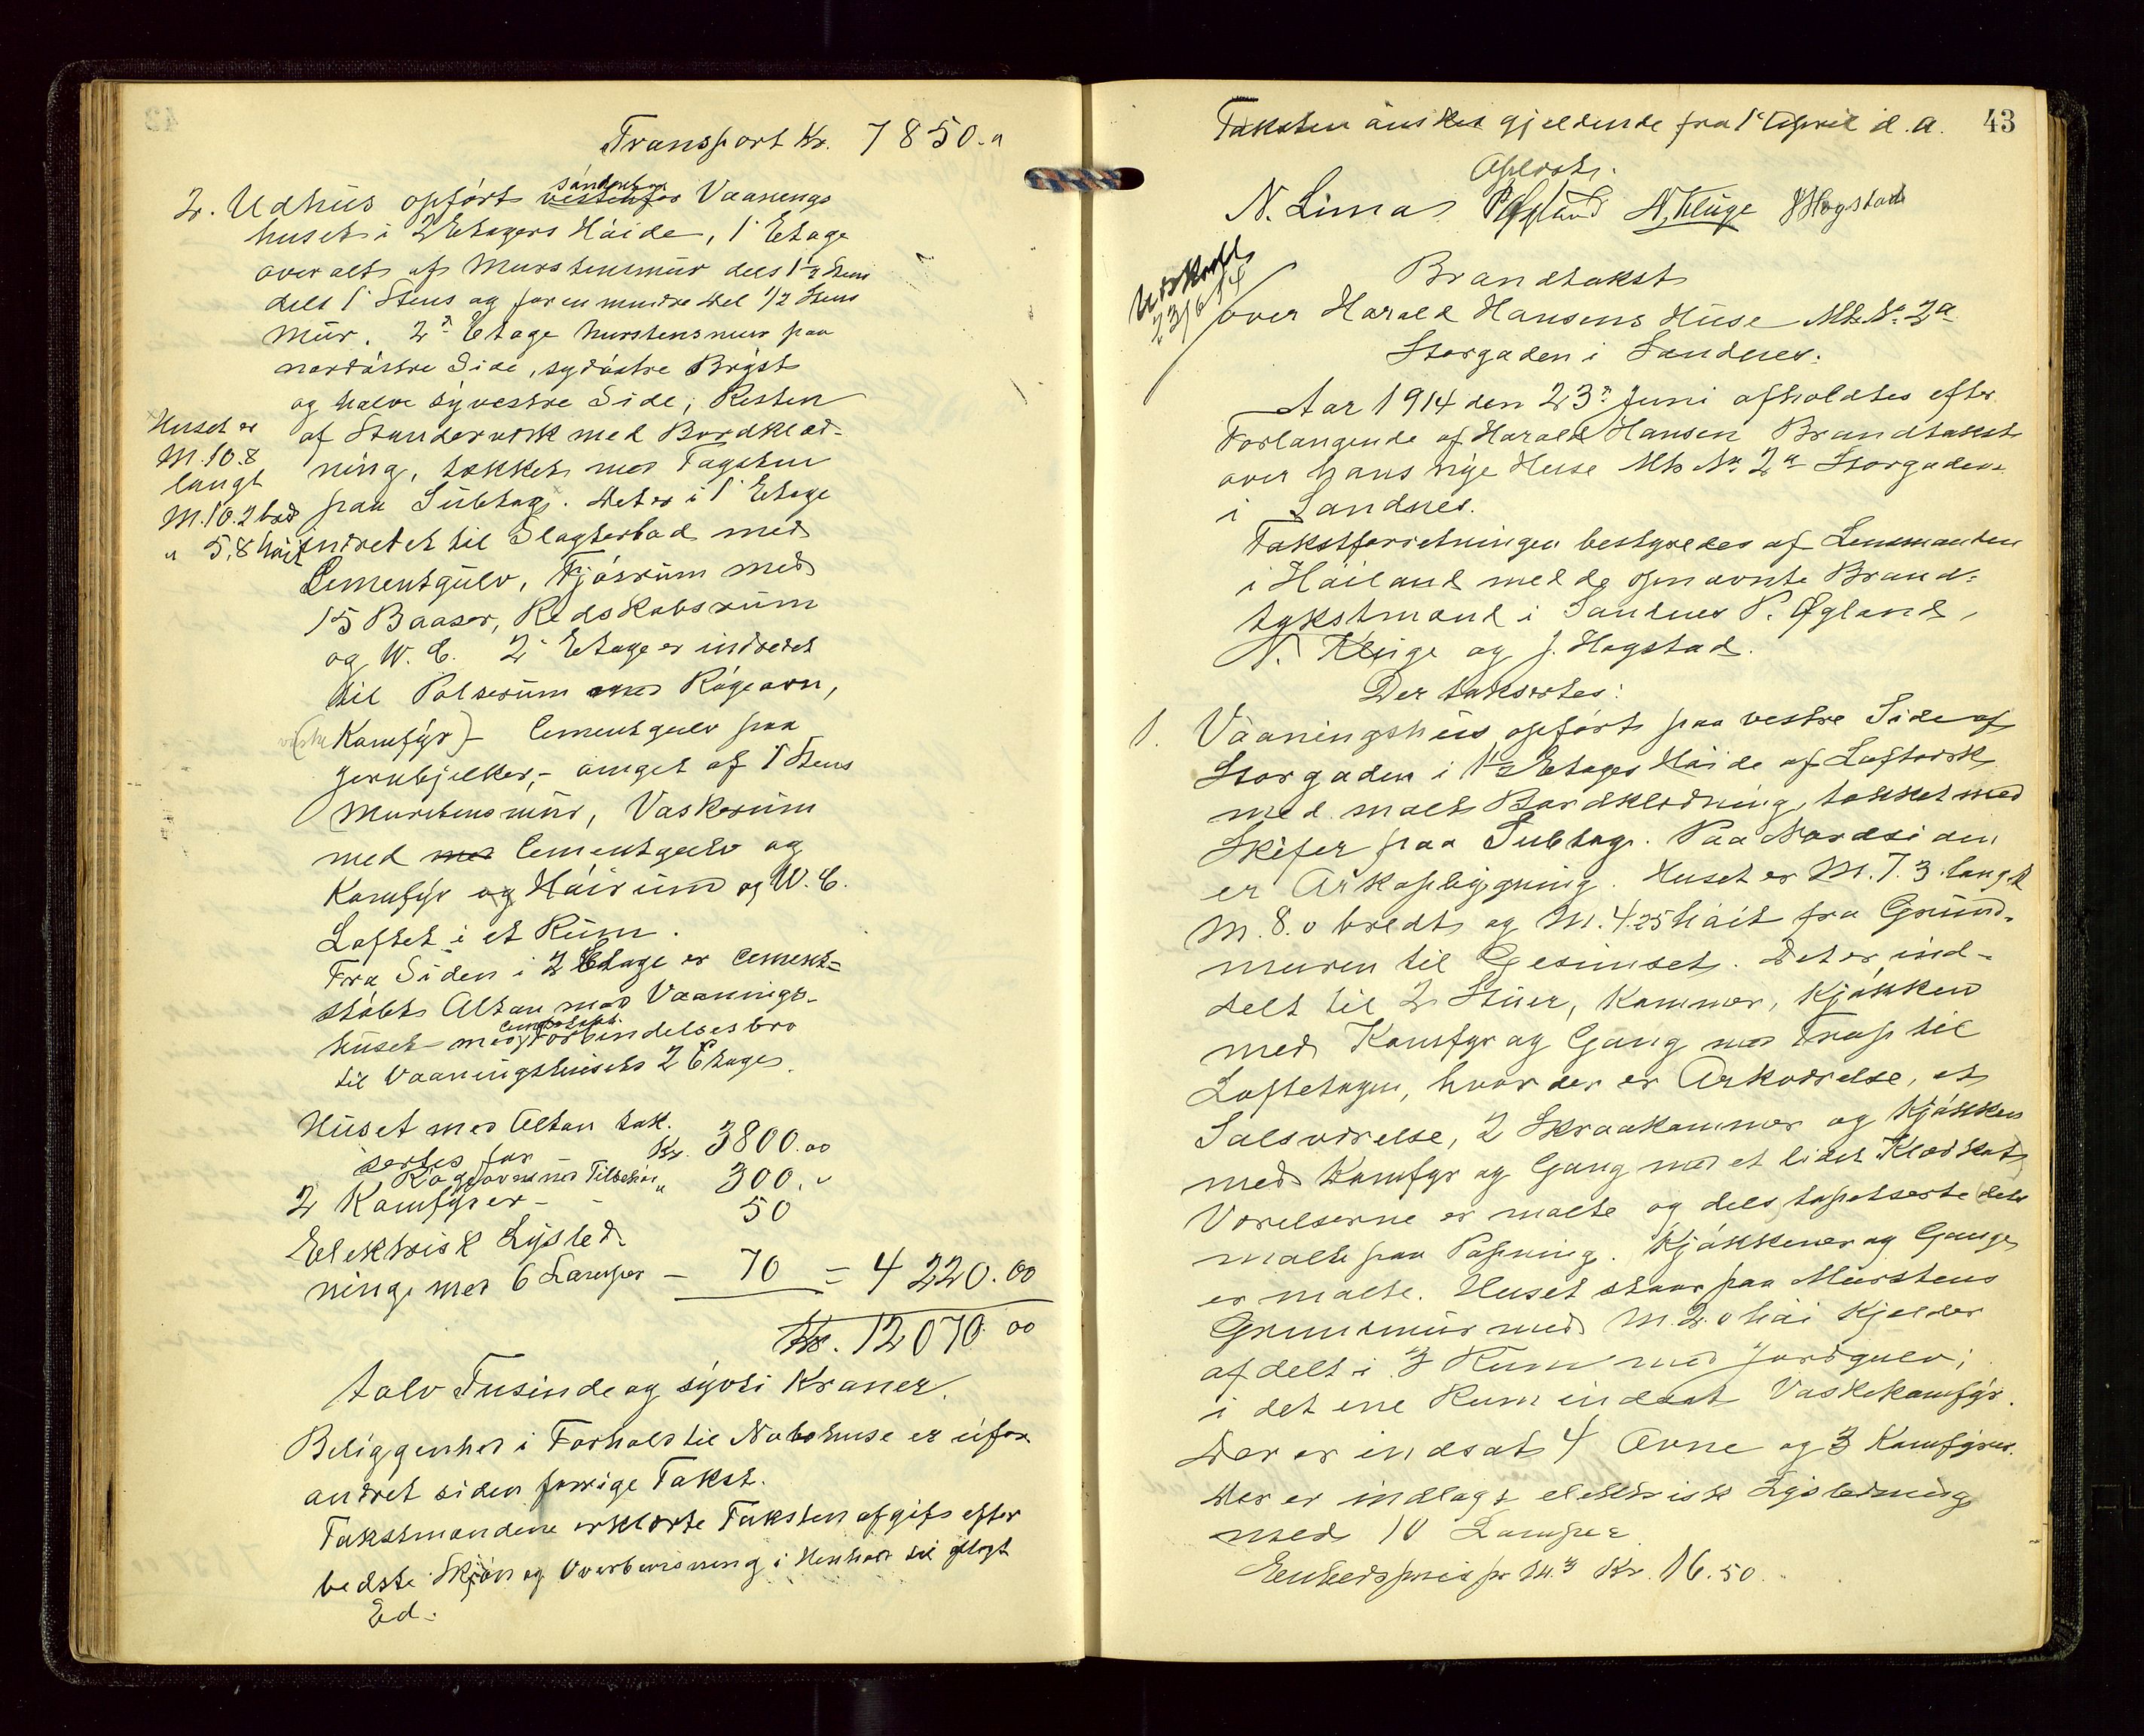 Transport Kr. 7850.„
2. Udhus opført vestenfor Vaanings
huset i 2 Etagers Høide, 1' Etage
overalt af Murstensmur dels 1½ Stens
dels 1 Stens og for en mindre Del ½ Stens
Mur. 2den Etage Murstensmur paa
nordøstre Side, sydøstre Bryst
og halve sÿvestre Side, Resten
af Standerværk med Bordklæd-
ning, tækket med Tagsten
paa Sutag. Det er i 1' Etage
indredet til Slagterbod med
Huset er
M. 10.8
langt
M. 10.2 bred
„ 5,8 høit
Cementgulv, Fjøsrum med
15 Baaser, Redskabsrum
og W. C. 2' Etage er indredet
til Pølserum med Røgeovn,
Komfÿr) - Cementgulv paa
Jernbjelker,- omget af 1 Stens
Murstensmur, Vaskerum
med med Cementgulv og
Komfÿr og Høirum og W. C.
Loftet i et Rum.
Fra Siden i 2 Etage er Cement-
støbt Altan mod Vaanings-
huset med Forbindelsesbro
til Vaaningshusets 2 Etage.
Huset med Altan tak-
sertes for Kr. 3800.00
Røgeovn med Tilbehør „ 300.„
2 Komfÿrer - - 50
Elektrisk Lÿsled-
ning med 6 Lamper - 70 = 4220.00
Kr. 12070.00
tolv Tusinde og sÿvti Kroner.
Beliggenhed i Forhold til Nabohuse er ufor
andret siden forrige Takst.
Takstmændene erklærte Taksten afgift efter
bedste Skjøn og Overbevisning i Henhold til aflagt
Ed.
43
Taksten ønskes gjeldende fra 1' April d. a.
Oplæst.
N. Lima P Øgland N. Kluge J Hogstad
Udskrift
23/6 14
Brandtakst
over Harald Hansens Huse Mk No 2a
Storgaden i Sandnes.
Aar 1914 den 23de Juni afholdtes efter
Forlangende af Harald Hansen Brandtakst
over hans nÿe Huse Mk No 2a Storgaden
i Sandnes.
Takstforretningen bestyredes af Lensmanden
i Høiland med de opnævnte Brand-
takstmænd i Sandnes P. Øgland,
N. Kluge og J. Hogstad.
Der takseretes:
1. Vaaningshus opført paa vestre Side af
Storgaden i 1½ Etages Høide af Loftværk
med malt Bordklædning, tækket med
Skifer paa Sutag. Paa Nordsiden
er Arkopbÿgning. Huset er M. 7.3 langt
M. 8.0 bredt og M. 4.25 høit fra Grund-
muren til Gesimset. Det er ind-
delt til 2 Stuer, Kammer, Kjøkken
med Komfyr og Gang med Trap til
Loftetagen, hvor der er Arkværelse, et
Salsværelse, 2 Skraakammer og Kjøkken
med Komfyr og Gang med et lidet Klædskot
Værelserne er malte og dels tapetserte dels
malte paa Papning. Kjøkkener og Gange
er malte. Huset staar paa Murstens
Grundmur med M. 2.0 høi Kjelder
afdelt i 3 Rum med Jordgulv;
i det ene Rum indsat Vaskekomfÿr.
Der er indsat 4 Ovne og 3 Komfyrer.
Der er indlagt elektrisk Lÿsledning
med 10 Lamper
Enhedspris pr M.3 Kr. 16.50